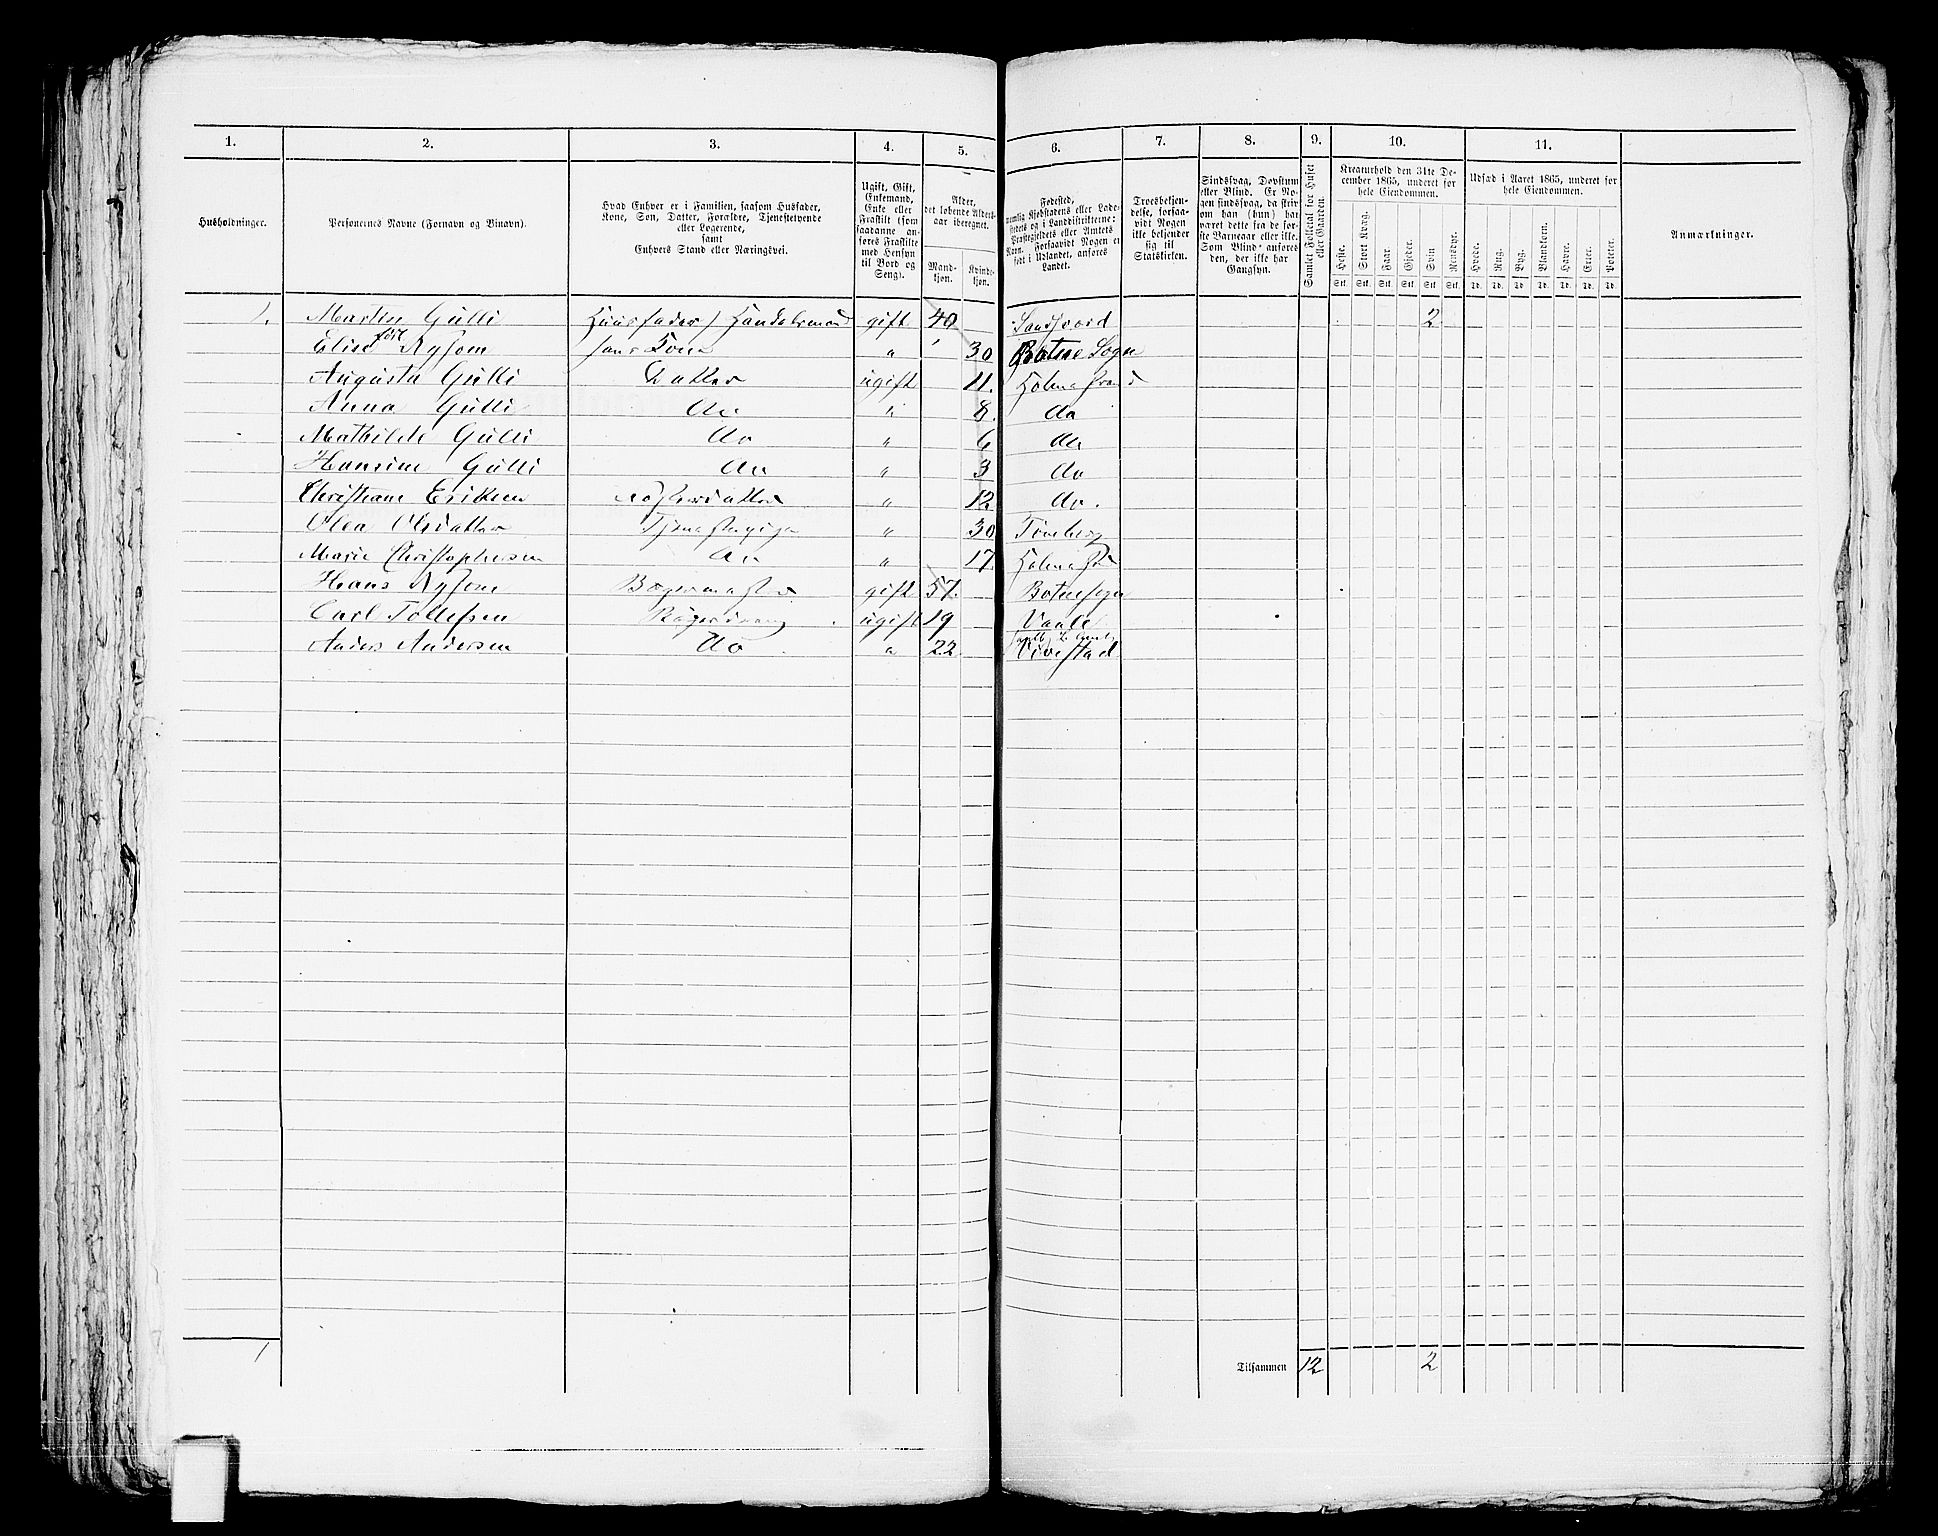 1. 2. 3. 4. 5. 6. 7. 8. 9. 10. 11.
Husholdninger.
Personernes Navne (Fornavn og Binavn).
Hvad Enhver er i Familien, saasom Husfader,
Kone, Søn, Datter, Forældre, Tjenestetyende
eller Logerende,
samt
Enhvers Stand eller Næringsvei.
Ugift, Gift,
Enkemand,
Enke eller
Fraskilt (som
saadanne an-
føres Fraskilte
med Hensyn
til Bord og
Seng).
Alder,
det løbende Alders-
aar iberegnet.
Mand-
kjøn.
Kvinde-
kjøn.
Fødested,
nemlig Kjøbstadens eller Lade-
stedets og i Landdistrikterne:
Præstegjeldets eller Amtets
Navn. Forsaavidt Nogen er
født i Udlandet, anføres
Landet.
Troesbekjen-
delse, forsaa-
vidt Nogen
ikke bekjender
sig til
Statskirken.
Sindssvag, Døvstum
eller Blind. Er No-
gen sindssvag, da skriv
om han (hun) har
været dette fra de før-
ste Barneaar eller ikke.
Som Blind anføres
den, der ikke har
Gangsyn.
Samlet Folketal for Huset
eller Gaarden.
Kreaturhold den 31te De-
cember 1865, underet for
hele Eiendommen.
Heste. Stort Kvæg. Faar. Gjeder. Svin Rensdyr.
Stk. Stk. Stk. Stk. Stk. Stk.
Udsæd i Aaret 1865, underet for
hele Eiendommen.
Hvede. Rug. Byg. Blandkorn. Havre. Erter. Poteter.
Td. Td. Td. Td. Td. Td. Td.
Anmærkninger.
1. Martin Gulli Huusfader / Handelsmand gift 40 Sandefiord 2
Elise født Nysom hans Kone " 30 Botne Sogn
Augusta Gulli Datter ugift 11. Holmestrand
Anna Gulli do " 8. do
Mathilde Gulli do " 6 do
Hansine Gulli do " 3 do
Christiane Eriksen " 12 do.
Olea Olsdatter Tjenestepige " 30 Tønsberg
Marie Christophersen do " 17.
Hans Nysom Bagermester gift 57. Botnesogn
Carl Tollefsen ugift 19 Vaale
Anders Andersen do " 22 Vivestad
1
Tilsammen 12 2